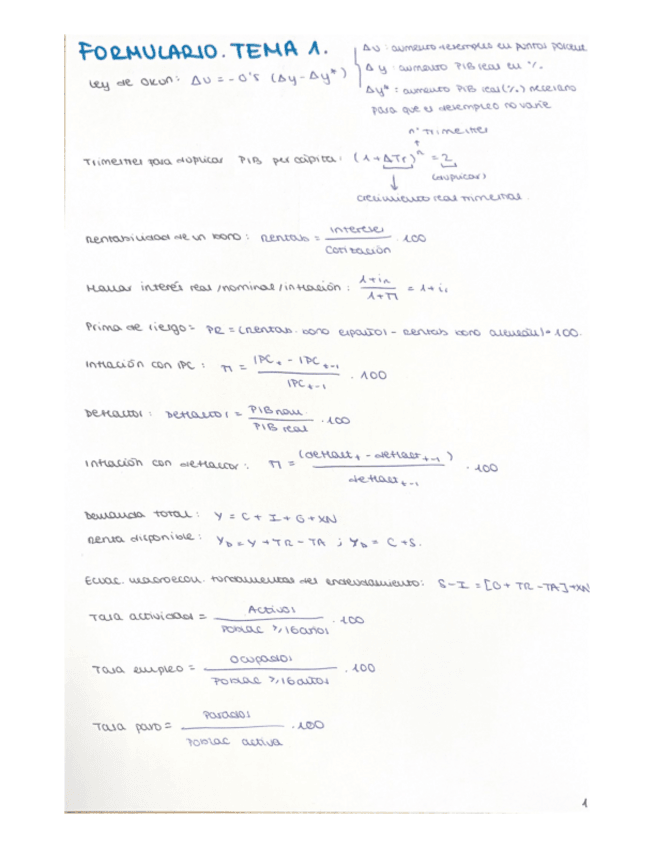 FORMULARIO. TEMA 1.
Ley de OKUN: Δu = -0'5 (Δy - Δy*)
Δu: aumento desempleo en puntos porcent
Δy: aumento PIB real en %.
Δy*: aumento PIB real (%) necesario
para que el desempleo no varíe
nº Trimestres
Trimestres para duplicar PIB per cápita: (1 + ΔTr)ⁿ = 2
(duplicar)
crecimiento real trimestral.
Rentabilidad de un bono: Rentab = Intereses / Cotización · 100
Hallar interés real/nominal/inflación: 1+iₙ / 1+π = 1+iᵣ
Prima de riesgo = PR = (Rentab. bono español - Rentab bono alemán) · 100.
Inflación con IPC: π = IPCₜ - IPCₜ₋₁ / IPCₜ₋₁ · 100
Deflactor: Deflactor = PIB nom. / PIB real · 100
Inflación con deflactor: π = (deflactₜ - deflactₜ₋₁) / deflactₜ₋₁ · 100
Demanda total: Y = C + I + G + XN
Renta disponible: Y_D = Y + TR - TA ; Y_D = C + S.
Ecuac. macroecon. fundamental del endeudamiento: S - I = [G + TR - TA] + XN
Tasa actividad = Activos / Poblac ≥ 16 años · 100
Tasa empleo = Ocupados / Poblac ≥ 16 años · 100
Tasa paro = Parados / Poblac activa · 100
1